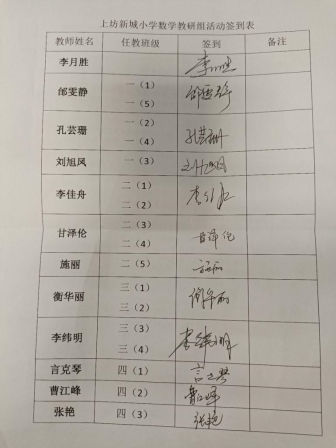 上坊新城小学数学教研组活动签到表
教师姓名 任教班级 签到 备注
李月胜 李月胜
邰雯静 一（1） 邰雯静
一（5）
孔芸珊 一（2） 孔芸珊
一（4）
刘旭凤 一（3） 刘旭凤
李佳舟 二（1） 李佳舟
二（2）
甘泽伦 二（3） 甘泽伦
二（4）
施丽 二（5） 施丽
衡华丽 三（1） 衡华丽
三（2）
李纬明 三（3） 李纬明
三（4）
言克琴 四（1） 言克琴
曹江峰 四（2） 曹江峰
张艳 四（3） 张艳